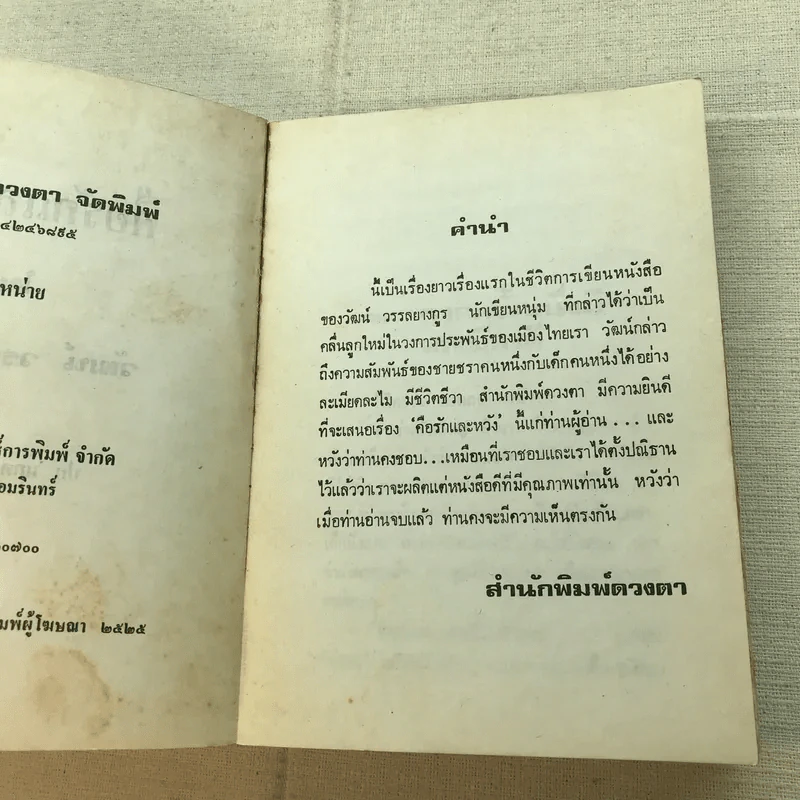 ดวงตา จัดพิมพ์
๔๒๔๖๘๙๕
หน่าย
การพิมพ์ จำกัด
อมรินทร์
๑๐๗๐๐
พิมพ์ผู้โฆษณา ๒๕๒๕
คำนำ
นี้เป็นเรื่องยาวเรื่องแรกในชีวิตการเขียนหนังสือ
ของวัฒน์ วรรลยางกูร นักเขียนหนุ่ม ที่กล่าวได้ว่าเป็น
คลื่นลูกใหม่ในวงการประพันธ์ของเมืองไทยเรา วัฒน์กล่าว
ถึงความสัมพันธ์ของชายชราคนหนึ่งกับเด็กคนหนึ่งได้อย่าง
ละเมียดละไม มีชีวิตชีวา สำนักพิมพ์ดวงตา มีความยินดี
ที่จะเสนอเรื่อง 'คือรักและหวัง' นี้แก่ท่านผู้อ่าน ... และ
หวังว่าท่านคงชอบ...เหมือนที่เราชอบและเราได้ตั้งปณิธาน
ไว้แล้วว่าเราจะผลิตแต่หนังสือดีที่มีคุณภาพเท่านั้น หวังว่า
เมื่อท่านอ่านจบแล้ว ท่านคงจะมีความเห็นตรงกัน
สำนักพิมพ์ดวงตา